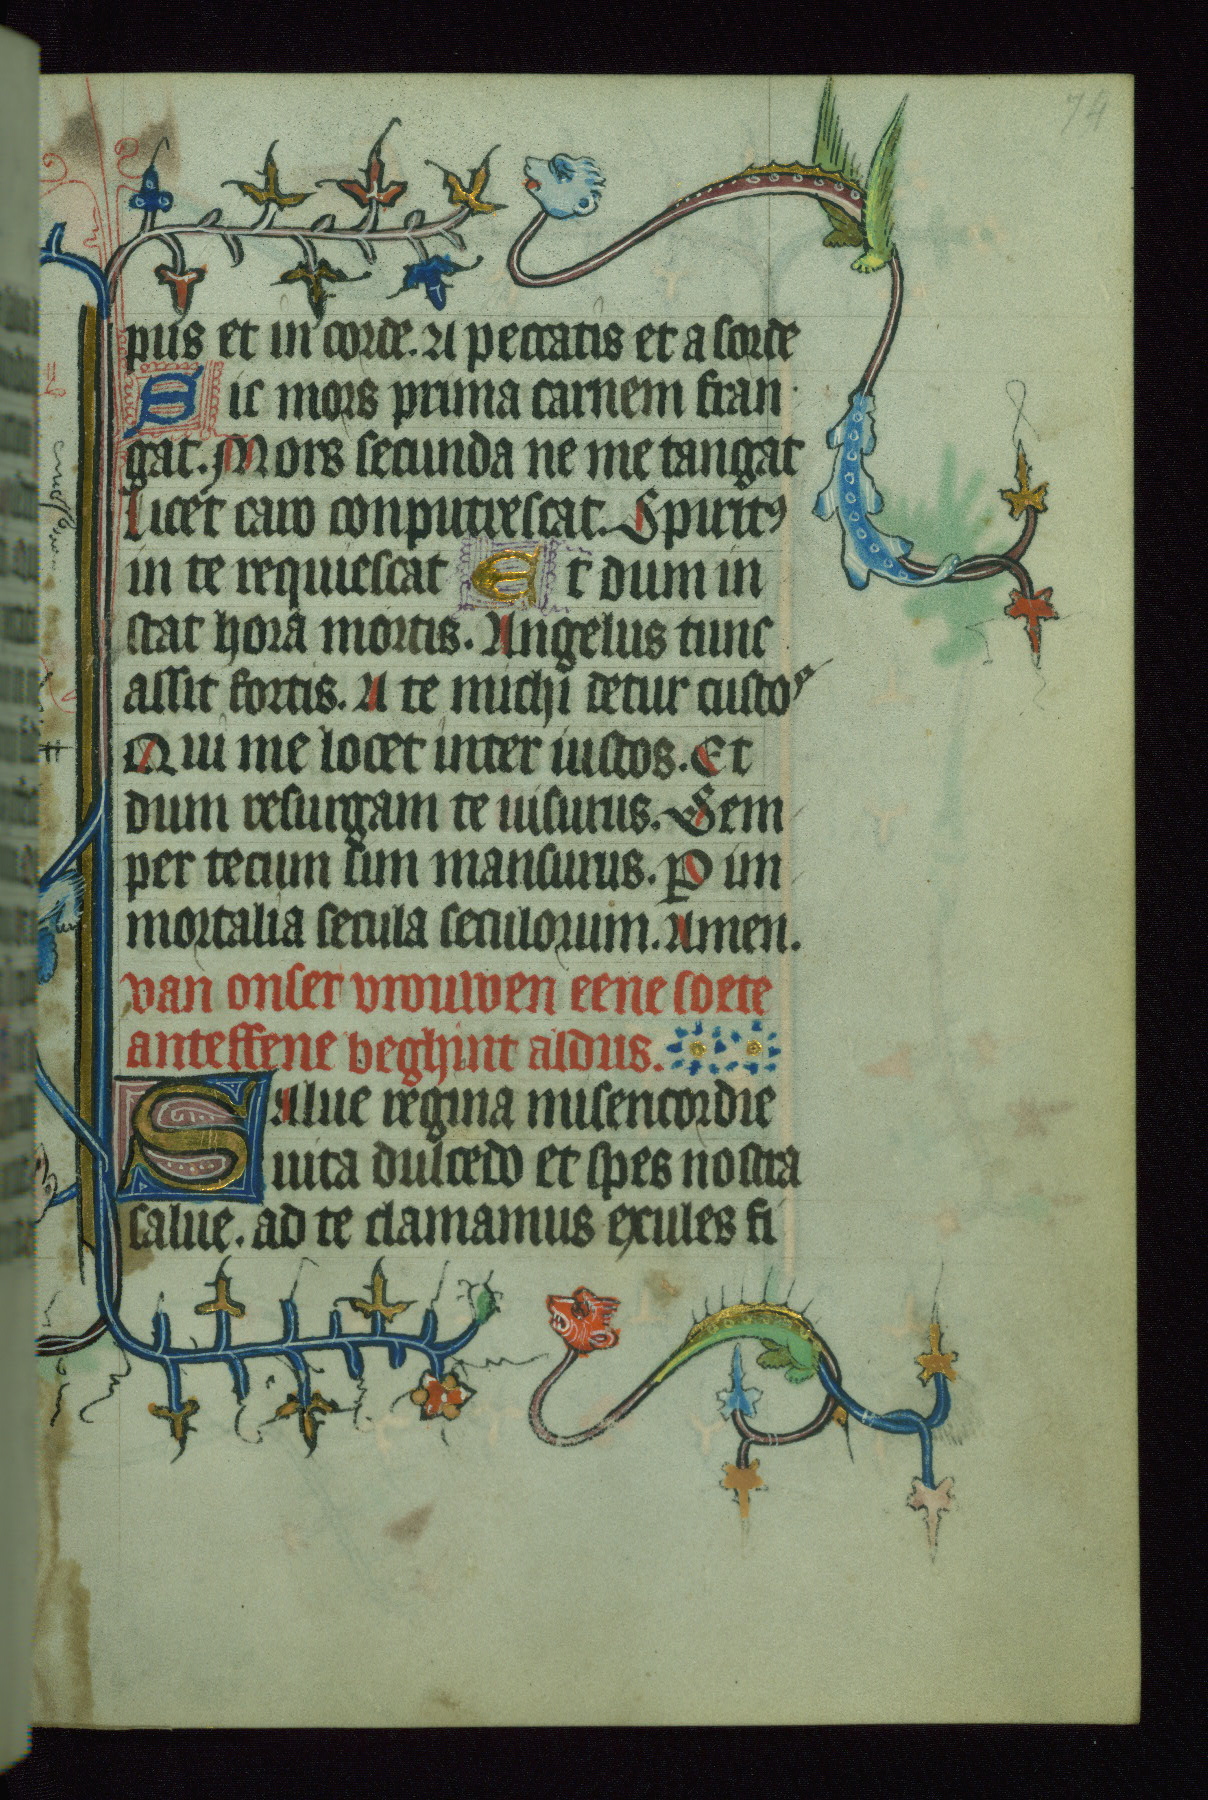 74
pus et in corde. A peccatis et a sorde
Sic mors prima carnem fran
gat. Mors secunda ne me tangat
Licet caro conputrescat. Spiritꝰ
in te requiescat Et dum in
stat hora mortis. Angelus tunc
assit fortis. A te michi detur custos
Qui me locet inter iustos. Et
dum resurgam te uisurus. Sem
per tecum sim mansurus. P im
mortalia secula seculorum. Amen.
van onser vrouwen eene soete
anteffene beghint aldus.
Salue regina misericordie
uita dulcedo et spes nostra
salue. ad te clamamus exules fi